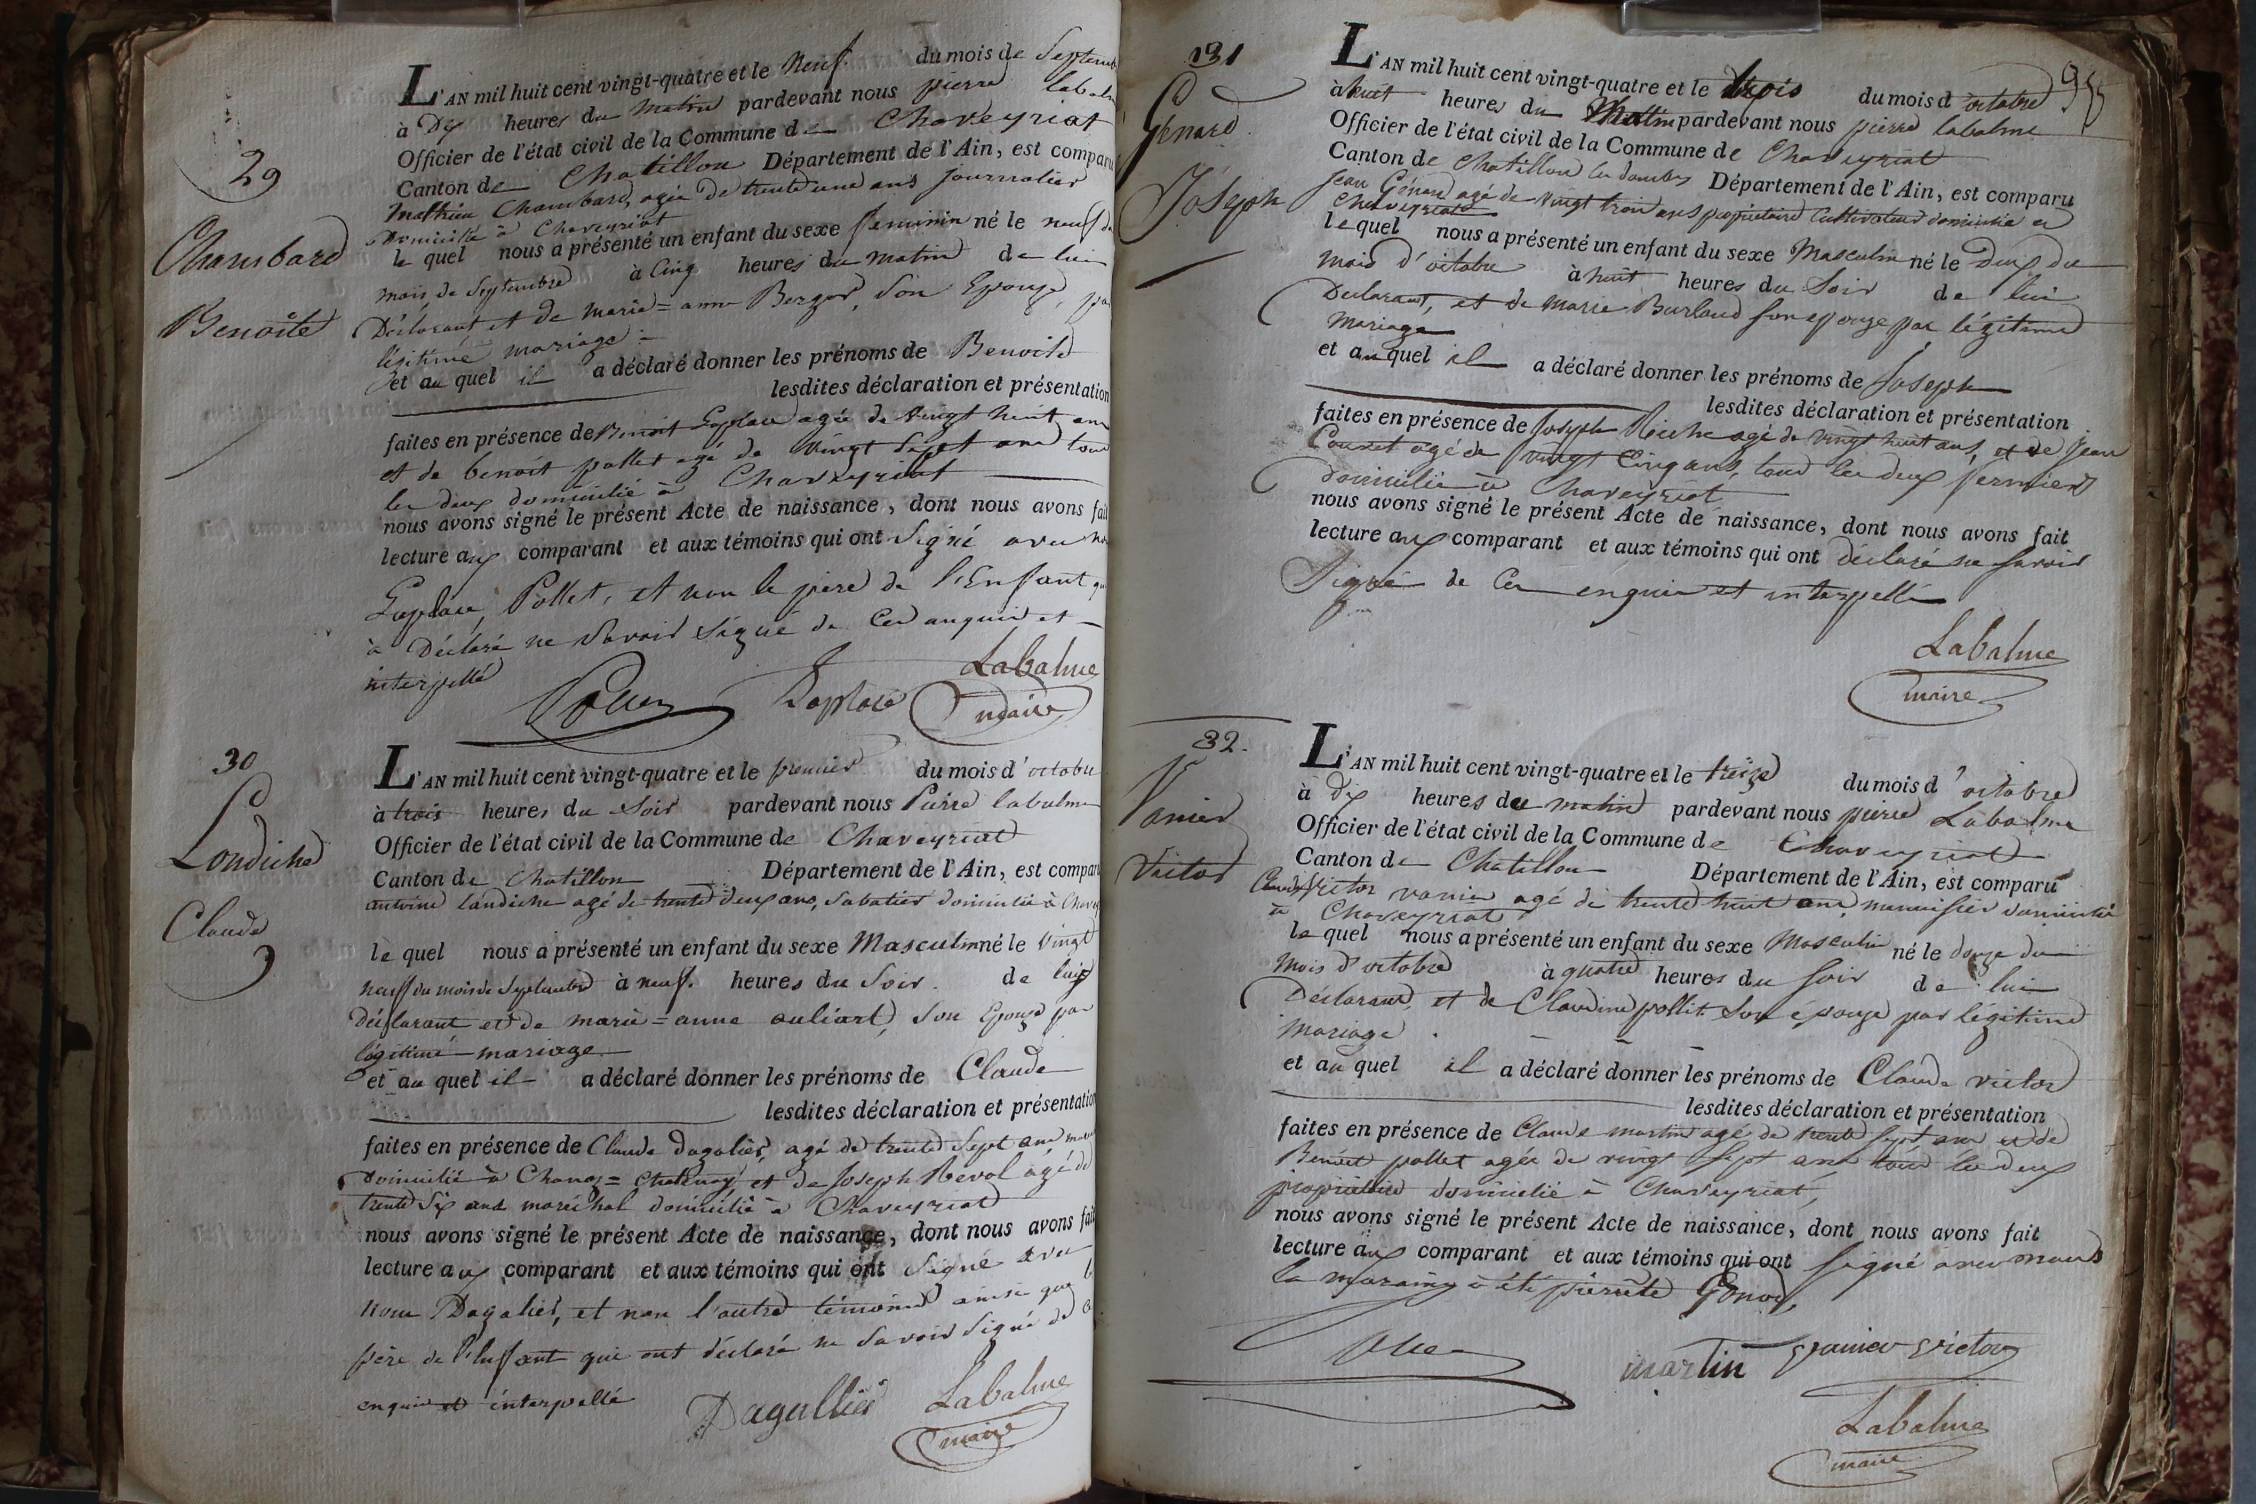 29
Chambard
Benoite
L'AN mil huit cent vingt-quatre et le neuf du mois de Septemb
à Dix heures du matin pardevant nous pierre labalm
Officier de l'état civil de la Commune de Chaveyriat
Canton de Chatillon Département de l'Ain, est comparu
Mathieu Chambard, agée de trente une ans journalier
Domicilié à Chaveyriat
le quel nous a présenté un enfant du sexe feminin né le neuf du
mois de Septembre à Cinq heures du matin de lui
Déclarant et de marie=anne Berger, Son Epouse, par
légitime mariage =
et au quel il a déclaré donner les prénoms de Benoite
lesdites déclaration et présentation
faites en présence de Benoit Laplace agée de vingt huit ans
et de benoit pollet agé de vingt Sept ans tous
les deux domicilié à Chaveyriat
nous avons signé le présent Acte de naissance, dont nous avons fait
lecture aux comparant et aux témoins qui ont Signé avec nous
Laplace, Pollet, et non le père de l'Enfant qui
à Déclaré ne Savoir Signé de Ced enquis et
interpellé
Pollet Laplace Labalme
maire
30
Londiche
Claude
L'AN mil huit cent vingt-quatre et le premier du mois d'octobre
à trois heures du Soir pardevant nous Pierre labalme
Officier de l'état civil de la Commune de Chaveyriat
Canton de Chatillon Département de l'Ain, est comparu
antoine landiche agé de trente deux ans, Sabatier domicilié à Chavey
le quel nous a présenté un enfant du sexe Masculin né le vingt
neuf du mois de Septembre à neuf. heures du Soir. de lui
déclarant et de marie=anne auliart, Son Epouse par
légitime mariage
et au quel il a déclaré donner les prénoms de Claude
lesdites déclaration et présentation
faites en présence de Claude Dagalier, agé de trente Sept ans
Domicilié à Chanoz=Chatenay et de Joseph Revol agé de
trente Six ans maréchal domicilié à Chaveyriat
nous avons signé le présent Acte de naissance, dont nous avons fait
lecture aux comparant et aux témoins qui ont Signé avec
nous Dagalier, et non l'autre témoins ainsi que le
père de l'enfant qui ont déclaré ne Savoir Signé de Ce
enquis et interpellé
Dagallier Labalme
maire
131
Génard
Joseph
95
L'AN mil huit cent vingt-quatre et le trois du mois d octobre
à huit heures du Matin pardevant nous pierre labalme
Officier de l'état civil de la Commune de Chaveyriat
Canton de Chatillon les dombes Département de l'Ain, est comparu
Jean Génard agé de vingt trois ans propriétaire Cultivateur domicilié à
Chaveyriat
le quel nous a présenté un enfant du sexe Masculin né le Deux du
mois d'octobre à huit heures du Soir de lui
Déclarant, et de Marie Burlaud son epouse par légitime
Mariage
et au quel il a déclaré donner les prénoms de Joseph
lesdites déclaration et présentation
faites en présence de Joseph Riche agé de vingt huit ans, et de jean
Couzet agé de vingt Cinq ans, tous les deux fermiers
domicilié à Chaveyriat
nous avons signé le présent Acte de naissance, dont nous avons fait
lecture aux comparant et aux témoins qui ont déclaré ne Savoir
Signé de Ces enquis et interpellé
Labalme
maire
32.
Vanier
Victor
L'AN mil huit cent vingt-quatre et le treize du mois d'octobre
à dix heures du matin pardevant nous pierre Labalme
Officier de l'état civil de la Commune de Chaveyriat
Canton de Chatillon Département de l'Ain, est comparu
Claude Victor vanier agé de trente huit ans, menuisier domicilié
à Chaveyriat
le quel nous a présenté un enfant du sexe Masculin né le douze du
mois d'octobre à quatre heures du Soir de lui
Déclarant, et de Claudine pollet Son épouse par légitime
mariage.
et au quel il a déclaré donner les prénoms de Claude victor
lesdites déclaration et présentation
faites en présence de Claude martin agé de trente Sept ans et de
Benoit pollet agée de vingt Sept ans tous les deux
propriétaire domicilié à Chaveyriat,
nous avons signé le présent Acte de naissance, dont nous avons fait
lecture aux comparant et aux témoins qui ont signé avec nous
la maraine à été pierrette Gonod,
martin Vanier Victor
Labalme
maire